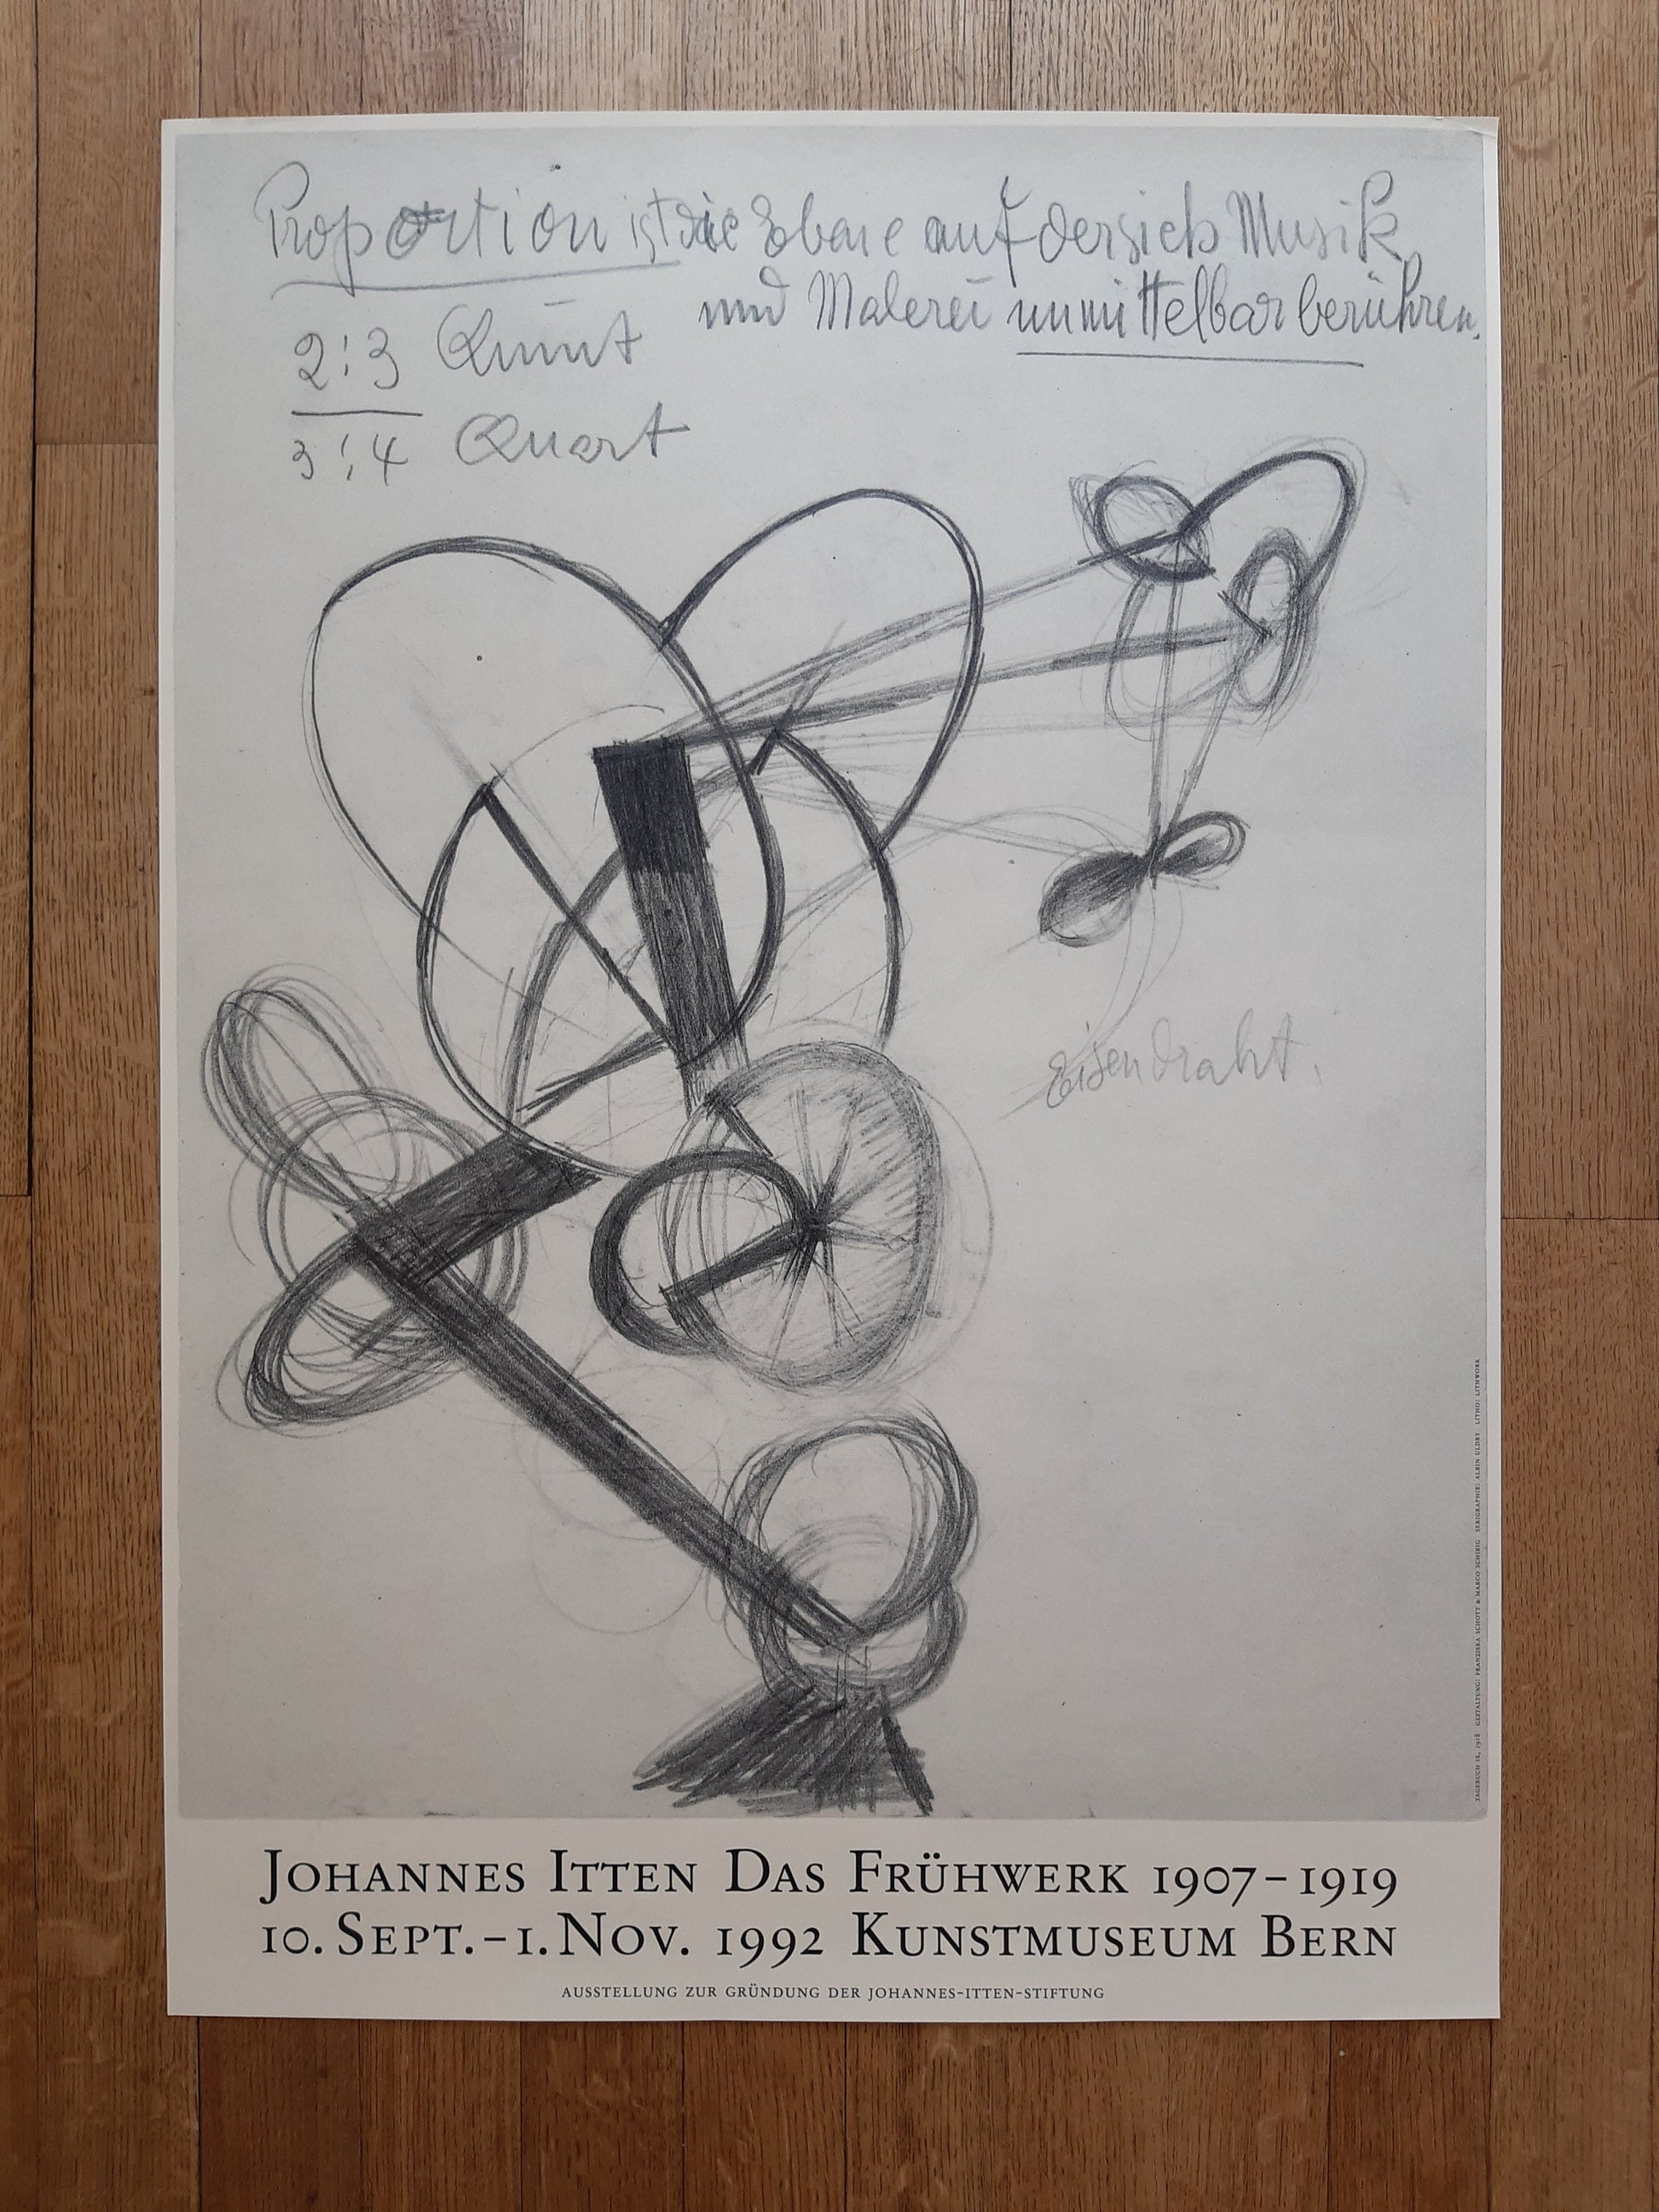 Proportion ist die Ebene auf der sich Musik
und Malerei unmittelbar berühren.
2:3 Quint
3:4 Quart
Eisendraht.
JOHANNES ITTEN DAS FRÜHWERK 1907–1919
10. SEPT.–1. NOV. 1992 KUNSTMUSEUM BERN
AUSSTELLUNG ZUR GRÜNDUNG DER JOHANNES-ITTEN-STIFTUNG
TAGEBUCH IX, 1918 GESTALTUNG: FRANZISKA SCHOTT & MARCO SCHIBIG SERIGRAPHIE: ALBIN ULDRY LITHO: LITHWORK